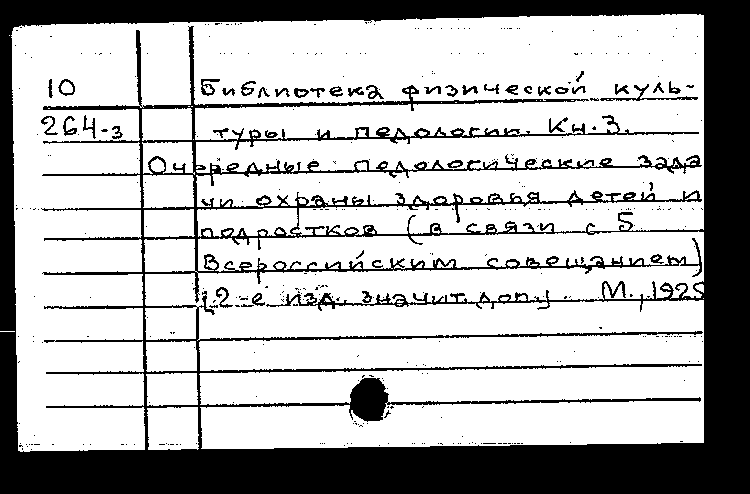 10 Библиотека физической куль-
264-з туры и педологии. Кн. 3.
Очередные педологические зада
чи охраны здоровья детей и
подростков (в связи с 5
Всероссийским совещанием)
[2-е изд. значит. доп.] М., 1925